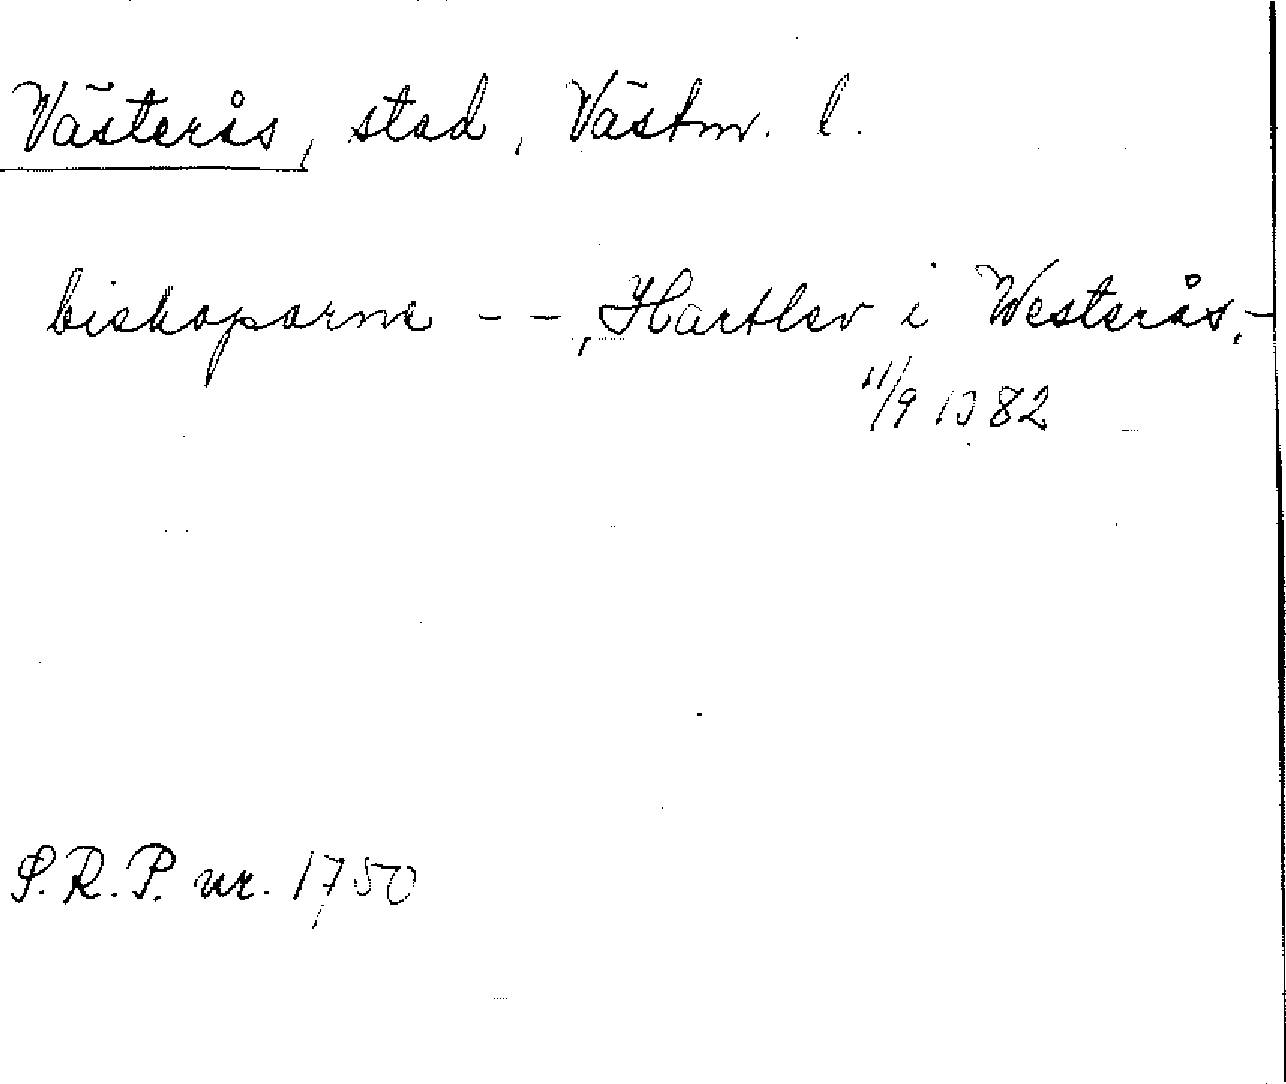 Västerås, stad, Västm. l.
biskoparne - -, Hartlev i Westerås. -
11/9 1382
S.R.P. nr. 1750